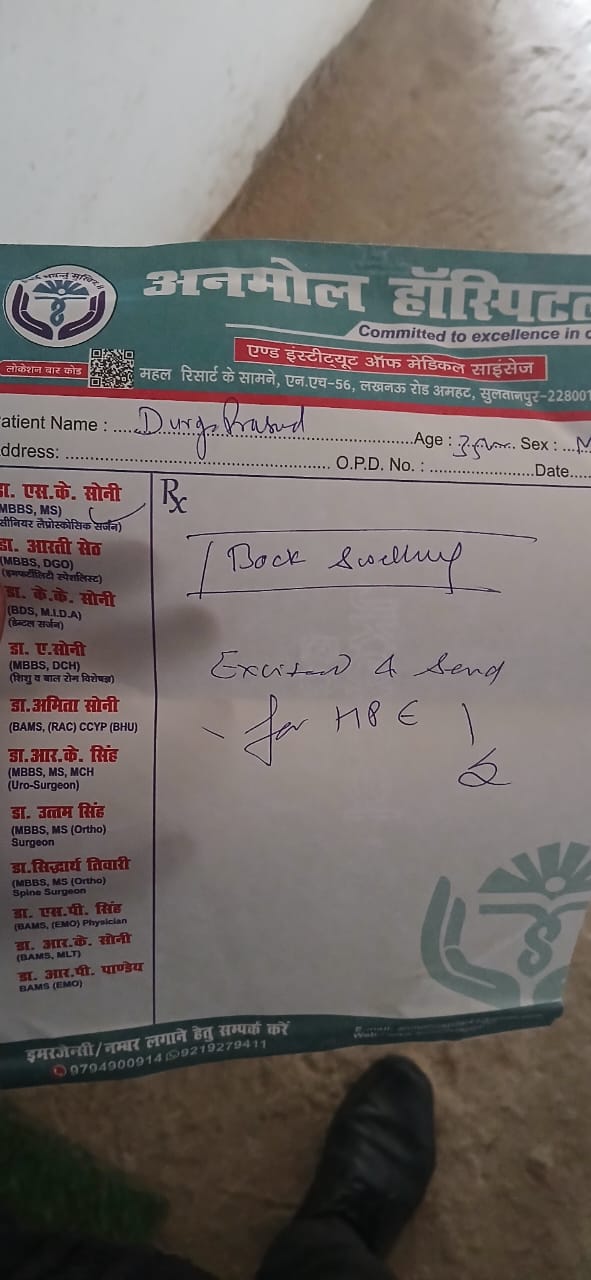 अनमोल हॉस्पिटल
Committed to excellence in c
एण्ड इंस्टीट्यूट ऑफ मेडिकल साइंसेज
लोकेशन बार कोड
महल रिसार्ट के सामने, एन.एच-56, लखनऊ रोड अमहट, सुलतानपुर-228001
atient Name : Durga Prasad Age : Sex : M
ddress: O.P.D. No. : Date
डा. एस.के. सोनी
MBBS, MS)
सीनियर लैप्रोस्कोसिक सर्जन)
डा. आरती सेठ
(MBBS, DGO)
(इनफर्टीलिटी स्पेशलिस्ट)
डा. के.के. सोनी
(BDS, M.I.D.A)
(डेन्टल सर्जन)
डा. ए.सोनी
(MBBS, DCH)
(शिशु व बाल रोग विशेषज्ञ)
डा.अमिता सोनी
(BAMS, (RAC) CCYP (BHU)
डा.आर.के. सिंह
(MBBS, MS, MCH
(Uro-Surgeon)
डा. उत्तम सिंह
(MBBS, MS (Ortho)
Surgeon
डा.सिद्धार्थ तिवारी
(MBBS, MS (Ortho)
Spine Surgeon
डा. एस.पी. सिंह
(BAMS, (EMO) Physician
डा. आर.के. सोनी
(BAMS, MLT)
डा. आर.पी. पाण्डेय
BAMS (EMO)
Rx
Back Swelling
Excised & Send
for HPE
इमरजेन्सी/नम्बर लगाने हेतु सम्पर्क करें
9794900914 9219279411